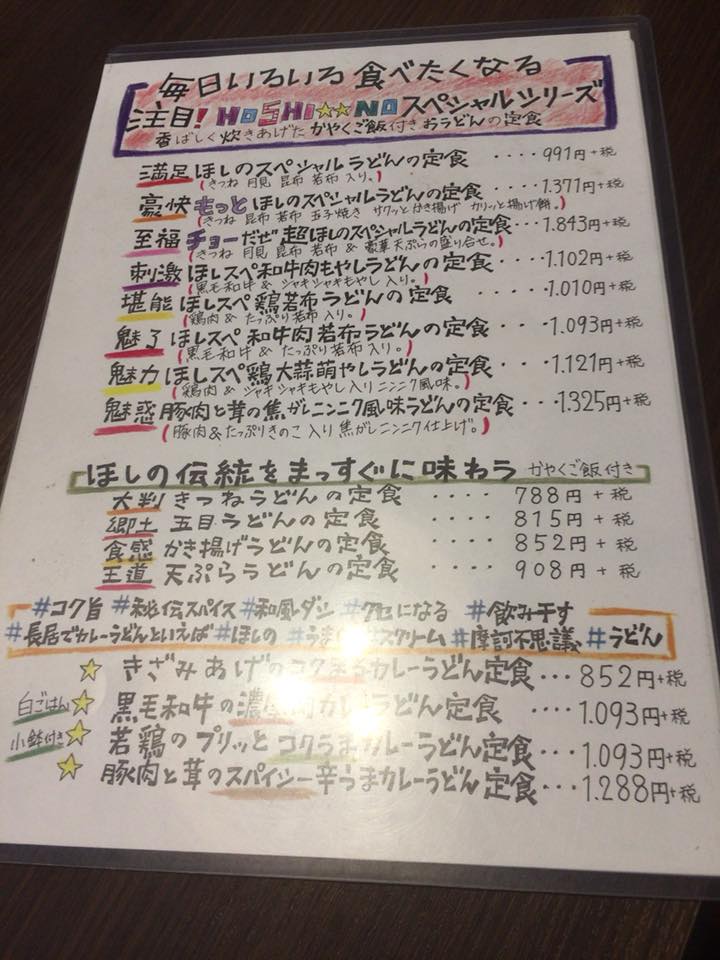 毎日いろいろ食べたくなる
注目! HOSHI★★NOスペシャルシリーズ
香ばしく炊きあげたかやくご飯付きおうどんの定食
満足 ほしのスペシャルうどんの定食 ････991円+税
(きつね 月見 昆布 若布 入り。)
豪快 もっとほしのスペシャルうどんの定食 ････1.371円+税
(きつね 昆布 若布 玉子焼き サクッとかき揚げ カリッと揚げ餅。)
至福 チョーだぜ 超ほしのスペシャルうどんの定食 ････1.843円+税
(きつね 月見 昆布 若布 & 豪華天ぷらの盛り合せ。)
刺激 ほしスペ和牛肉もやしうどんの定食 ････1.102円+税
(黒毛和牛 & シャキシャキもやし入り。)
堪能 ほしスペ鶏若布うどんの定食 ････1.010円+税
(鶏肉 & たっぷり若布入り。)
魅了 ほしスペ 和牛肉若布うどんの定食 ････1.093円+税
(黒毛和牛 & たっぷり若布入り。)
魅力 ほしスペ鶏大蒜萌やしうどんの定食 ････1.121円+税
(鶏肉 & シャキシャキもやし入りニンニク風味。)
魅惑 豚肉と茸の焦がしニンニク風味うどんの定食 ････1.325円+税
(豚肉&たっぷりきのこ入り焦がしニンニク仕上げ。)
ほしの伝統をまっすぐに味わう かやくご飯付き
大判 きつねうどんの定食 ････ 788円+税
郷土 五目うどんの定食 ････ 815円+税
食感 かき揚げうどんの定食 ････ 852円+税
王道 天ぷらうどんの定食 ････ 908円+税
#コク旨 #秘伝スパイス #和風ダシ #クセになる #飲み干す
#長居でカレーうどんといえば #ほしの #うま スクリーム #摩訶不思議 #うどん
☆ きざみあげのコク カレーうどん定食･･･852円+税
白ごはん ☆ 黒毛和牛の濃 カレーうどん定食 ･･･1.093円+税
小鉢付き ☆ 若鶏のプリッとコクうまカレーうどん定食･･･1.093円+税
☆ 豚肉と茸のスパイシー辛うまカレーうどん定食･･･1.288円+税